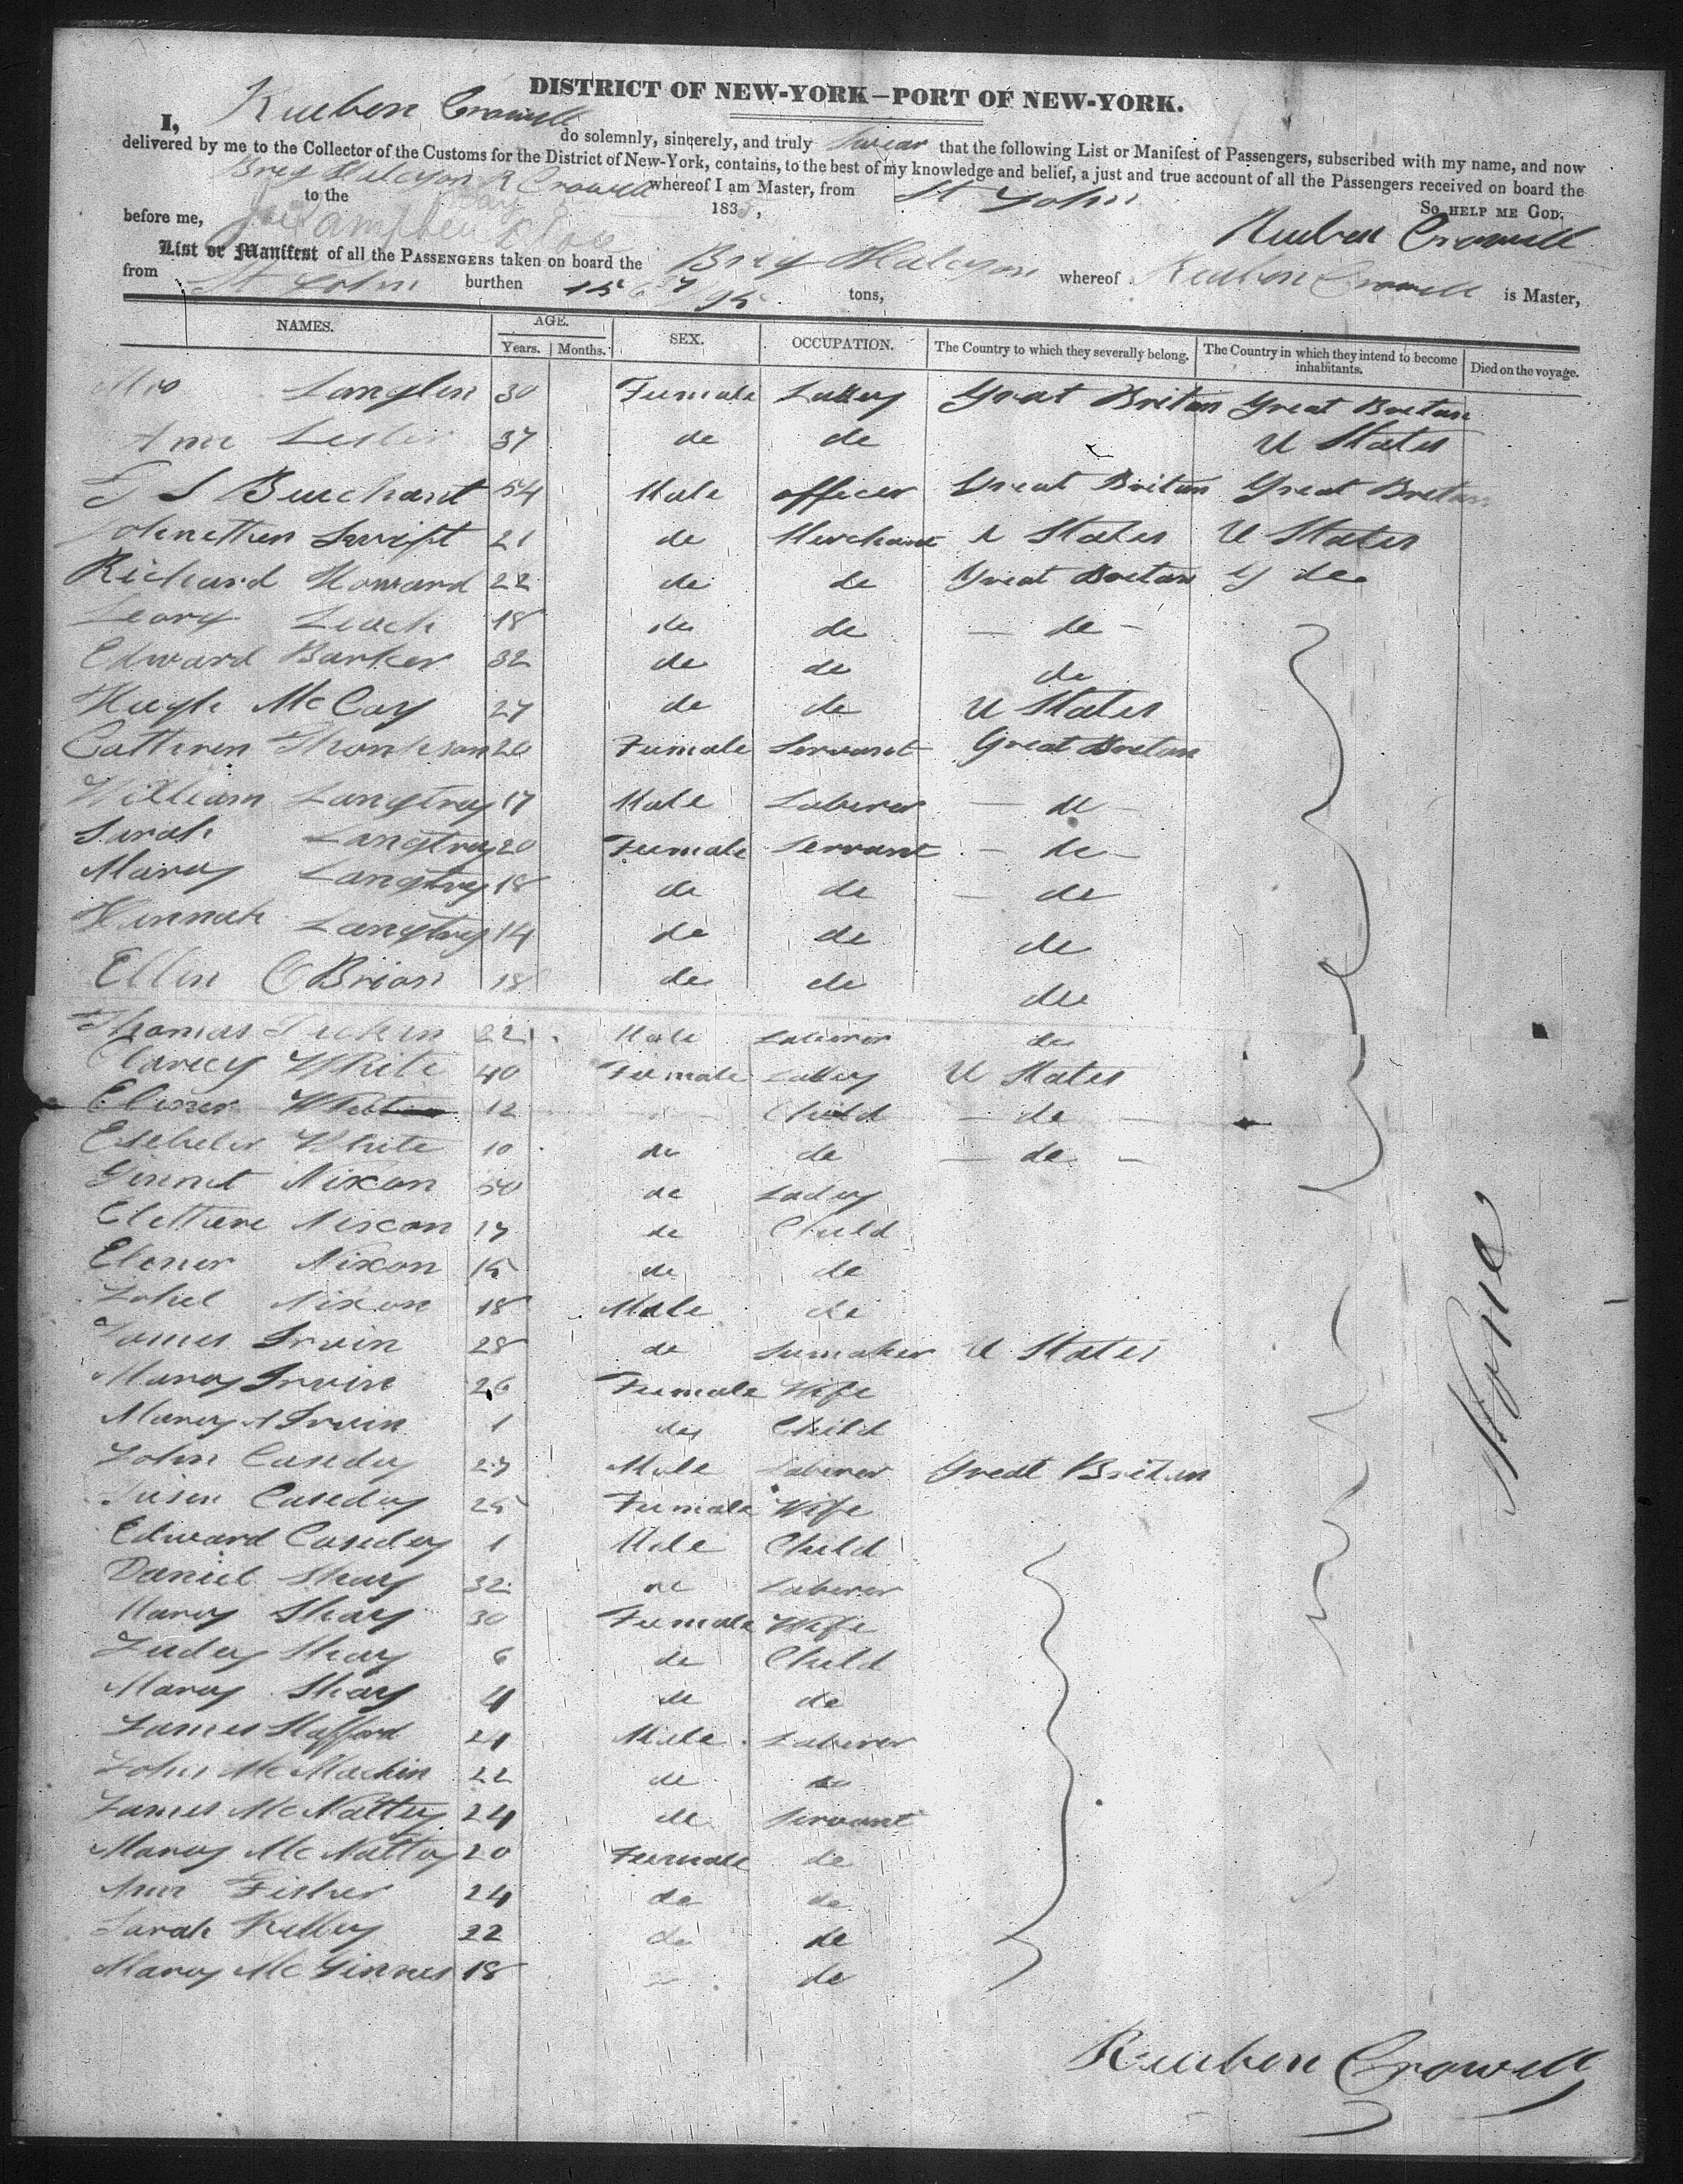 DISTRICT OF NEW-YORK—PORT OF NEW-YORK.
I, Reuben Crowell do solemnly, sincerely, and truly Swear that the following List or Manifest of Passengers, subscribed with my name, and now
delivered by me to the Collector of the Customs for the District of New-York, contains, to the best of my knowledge and belief, a just and true account of all the Passengers received on board the
Brig Halcyon R Crowell whereof I am Master, from St. John
to the 183 , So HELP ME GOD.
before me, Reuben Crowell
List or Manifest of all the PASSENGERS taken on board the Brig Halcyon whereof Reuben Crowell is Master,
from St John burthen 156 tons,
NAMES. AGE. SEX. OCCUPATION. The Country to which they severally belong. The Country in which they intend to become inhabitants. Died on the voyage.
Years. Months.
Mrs 30 Fumale Ladey Great Britan Great Bretan
Ann 37 de de U States
54 Male officer Great Britan Great Bretan
Johnethen Swift 21 de Merchant U States U States
Richard Howard 22 de de Great Bretan de
Leach 18 de de — de —
Edward Barker 32 de de de
Hugh McCay 27 de de U States
Cathren 26 Fumale Servant Great Bretan
William Langtrey 17 Male Laberer — de —
Sarah Langtrey 20 Fumale Servant — de —
Marey Langtrey 18 de de — de
Hannah Langtrey 14 de de de
Ellen OBrian 18 de de de
Thomas 22 Male Laberer de
White 40 Fumale Ladey U States
White 12 Child — de —
White 10 de de — de —
Nixon 50 de Ladey
Nixon 17 de Child
Elener Nixon 15 de de
Nixon 18 Male de
James Irvin 28 de Sumaker U States
Marey Irvin 26 Fumale Wife
Marey A Irvin 1 de Child
John Casedey 27 Male Laberer Great Britan
Susen Casedey 25 Fumale Wife
Edward Casedey 1 Male Child
Daniel Shay 32 de Laberer
Marey Shay 30 Fumale Wife
Judey Shay 6 de Child
Marey Shay 4 de de
James Stafford 24 Male Laberer
John McMackin 22 de de
James McNattey 24 de Servant
Marey McNattey 20 Fumale de
Ann Fisher 24 de de
Sarah Kelley 22 de de
Marey McGinnes 18 de
None
Reuben Crowell